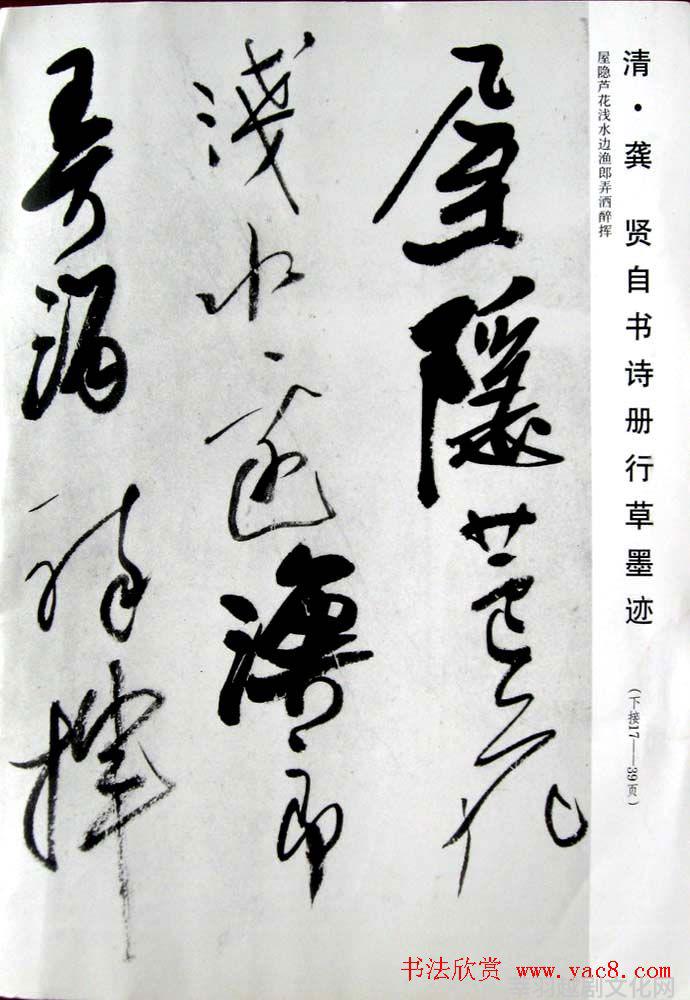 清·龚 贤自书诗册行草墨迹
(下接17——39页)
屋隐芦花浅水边渔郎弄洒醉挥
屋隱蘆花
淺水邊漁郎
弄酒醉揮
书法欣赏 www.yac8.com